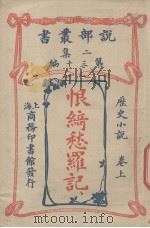 說部叢書
第二集第十三編
歷史小說 卷上
恨綺愁羅記
上海商務印書館發行